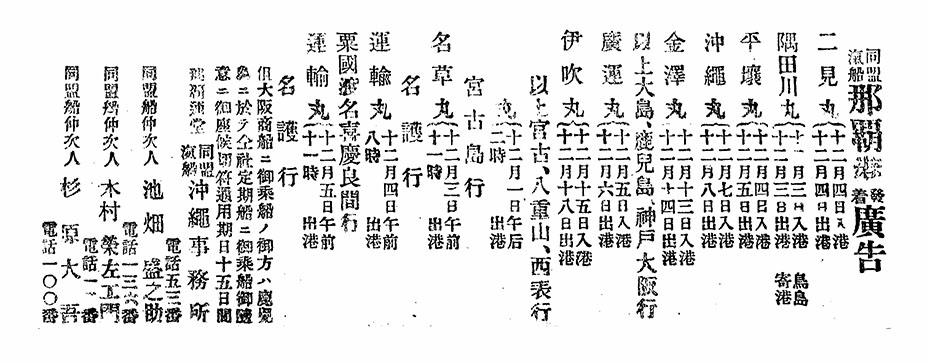 同盟汽船那覇港發着廣告
二見丸 十二月四日入港 十二月四日出港
隅田川丸 十二月三日入港 十二月三日出港 鳥島寄港
平壤丸 十二月四日入港 十二月五日出港
沖繩丸 十二月七日入港 十二月八日出港
金澤丸 十二月十三日入港 十二月十四日出港
以上大島、鹿兒島、神戸大阪行
廣運丸 十二月五日入港 十二月六日出港
伊吹丸 十二月十五日入港 十二月十八日出港
以上宮古、八重山、西表行
丸 十二月一日午后二時 出港
宮古島行
名草丸 十二月三日午前十一時 出港
名護行
運輸丸 十二月四日午前八時 出港
粟國渡名喜慶良間行
運輸丸 十二月五日午前十一時 出港
名護行
但大阪商船ニ御乘船ノ御方ハ鹿兒
島ニ於テ仝社定期船ニ御乘船御隨
意ニ御座候切符通用期日十五日間
運堂 同盟汽船 沖繩事務所
電話五三番
同盟船仲次人 池畑盛之助
電話一三六番
同盟船仲次人 木村榮左衛門
電話一一番
同盟船仲次人 杉原大吾
電話一〇〇番